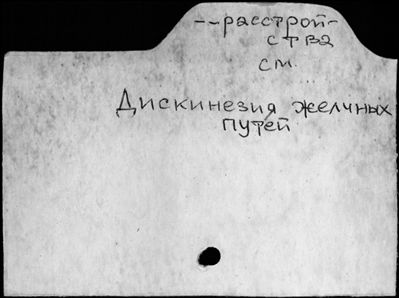 --расстрой-
ства
см.
Дискинезия желчных
путей